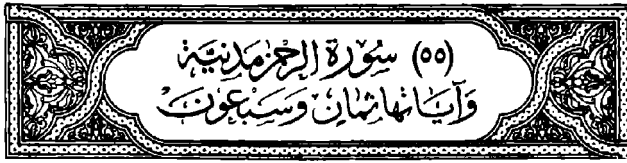 (٥٥) سُورَة الرحمن مَدنِيَّة
وَآيَاتهَا ثمَان وَسَبْعُونَ